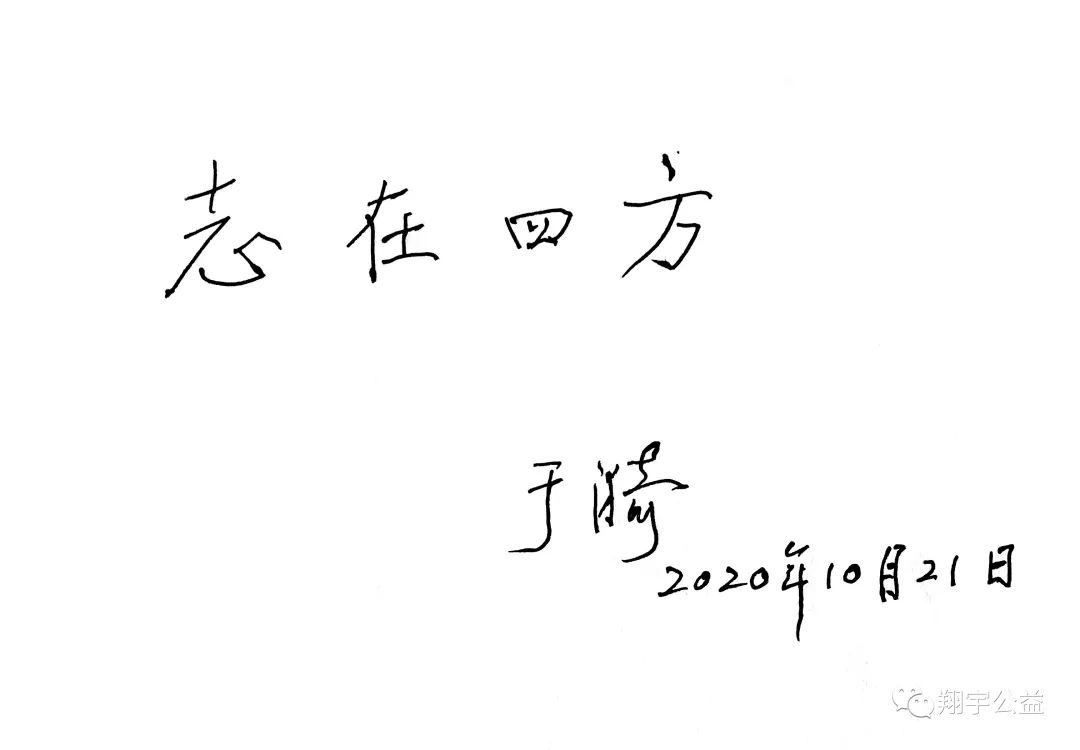 志在四方
于漪
2020年10月21日
翔宇公益